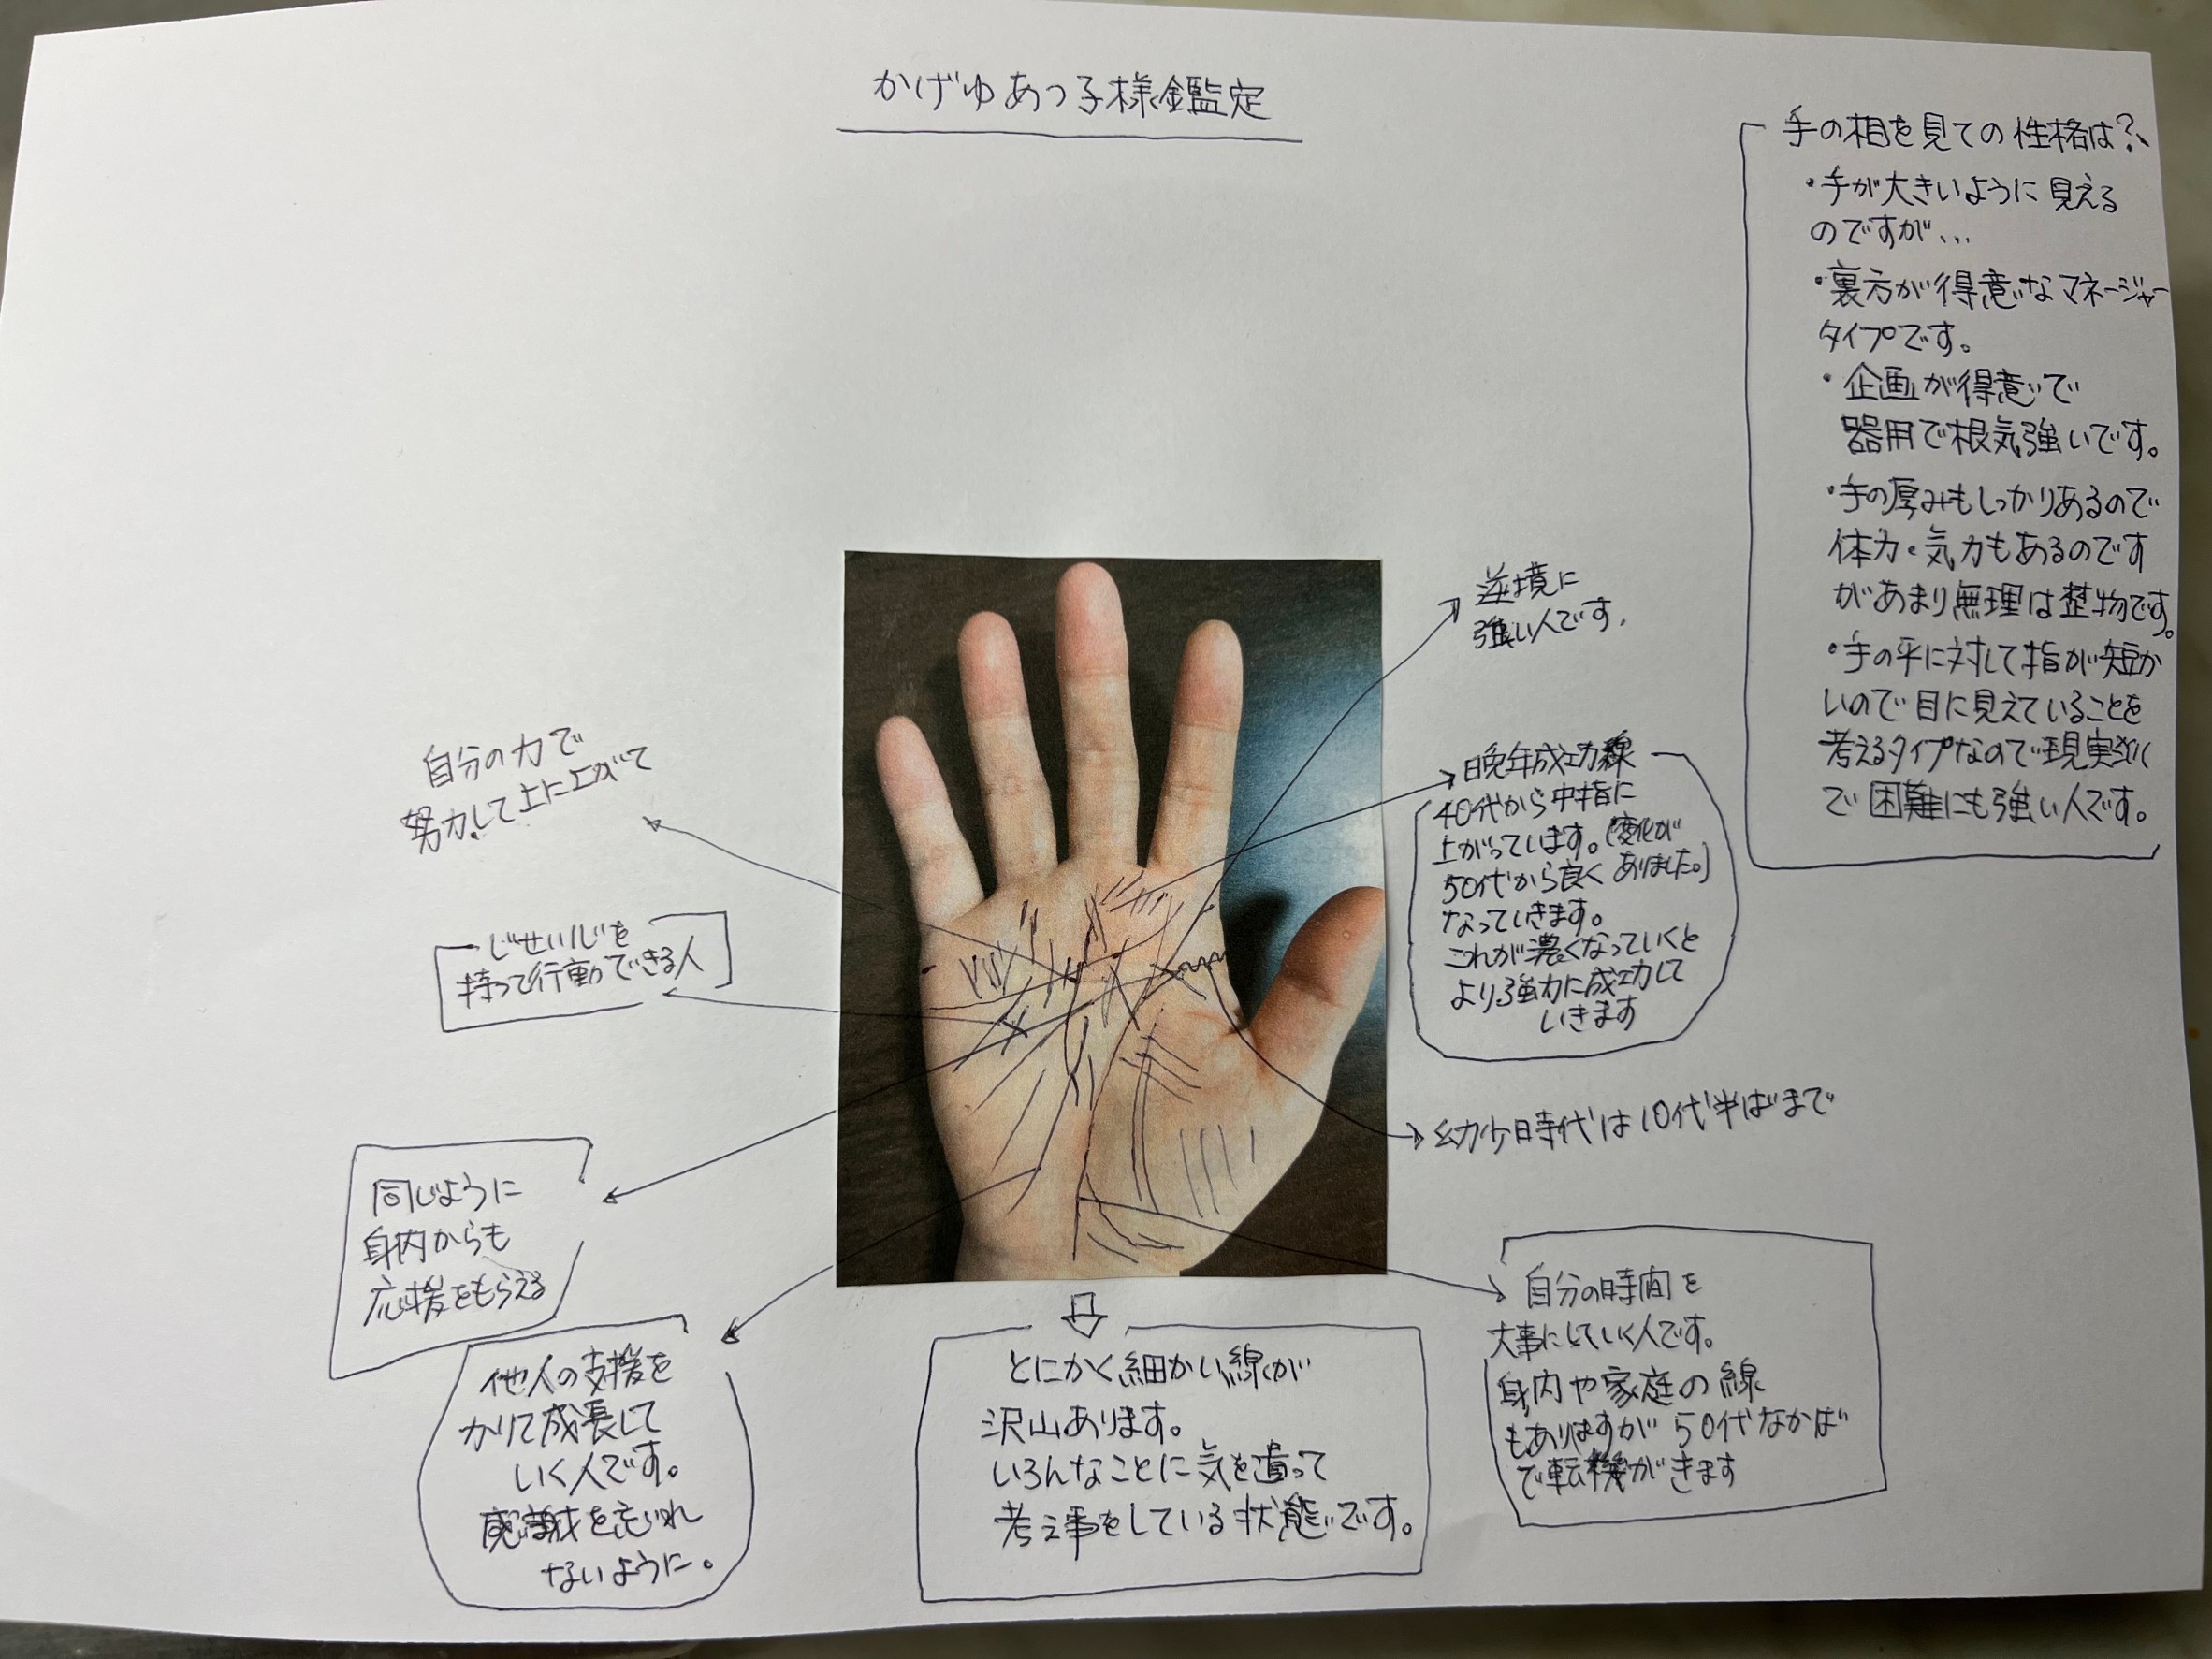 かげゆあつ子様鑑定
手の相を見ての性格は?
・手が大きいように見える
のですが…
・裏方が得意なマネージャー
タイプです。
・企画が得意で
器用で根気強いです。
・手の厚みもしっかりあるので
体力・気力もあるのです
があまり無理は禁物です。
・手の平に対して指が短か
いので目に見えていることを
考えるタイプなので現実派
で困難にも強い人です。
逆境に
強い人です.
晩年成功線
40代から中指に
上がっています。(変化が
ありました。)
50代から良く
なっていきます。
これが濃くなっていくと
より強力に成功して
いきます
幼少時代は10代半ばまで
自分の時間を
大事にしていく人です。
身内や家庭の線
もありますが50代なかば
で転機がきます
自分の力で
努力して上に上がて
じせい心を
持って行動できる人
同じように
身内からも
応援をもらえる
他人の支援を
かりて成長して
いく人です。
感謝を忘れ
ないように。
とにかく細かい線が
沢山あります。
いろんなことに気を遣って
考え事をしている状態です。